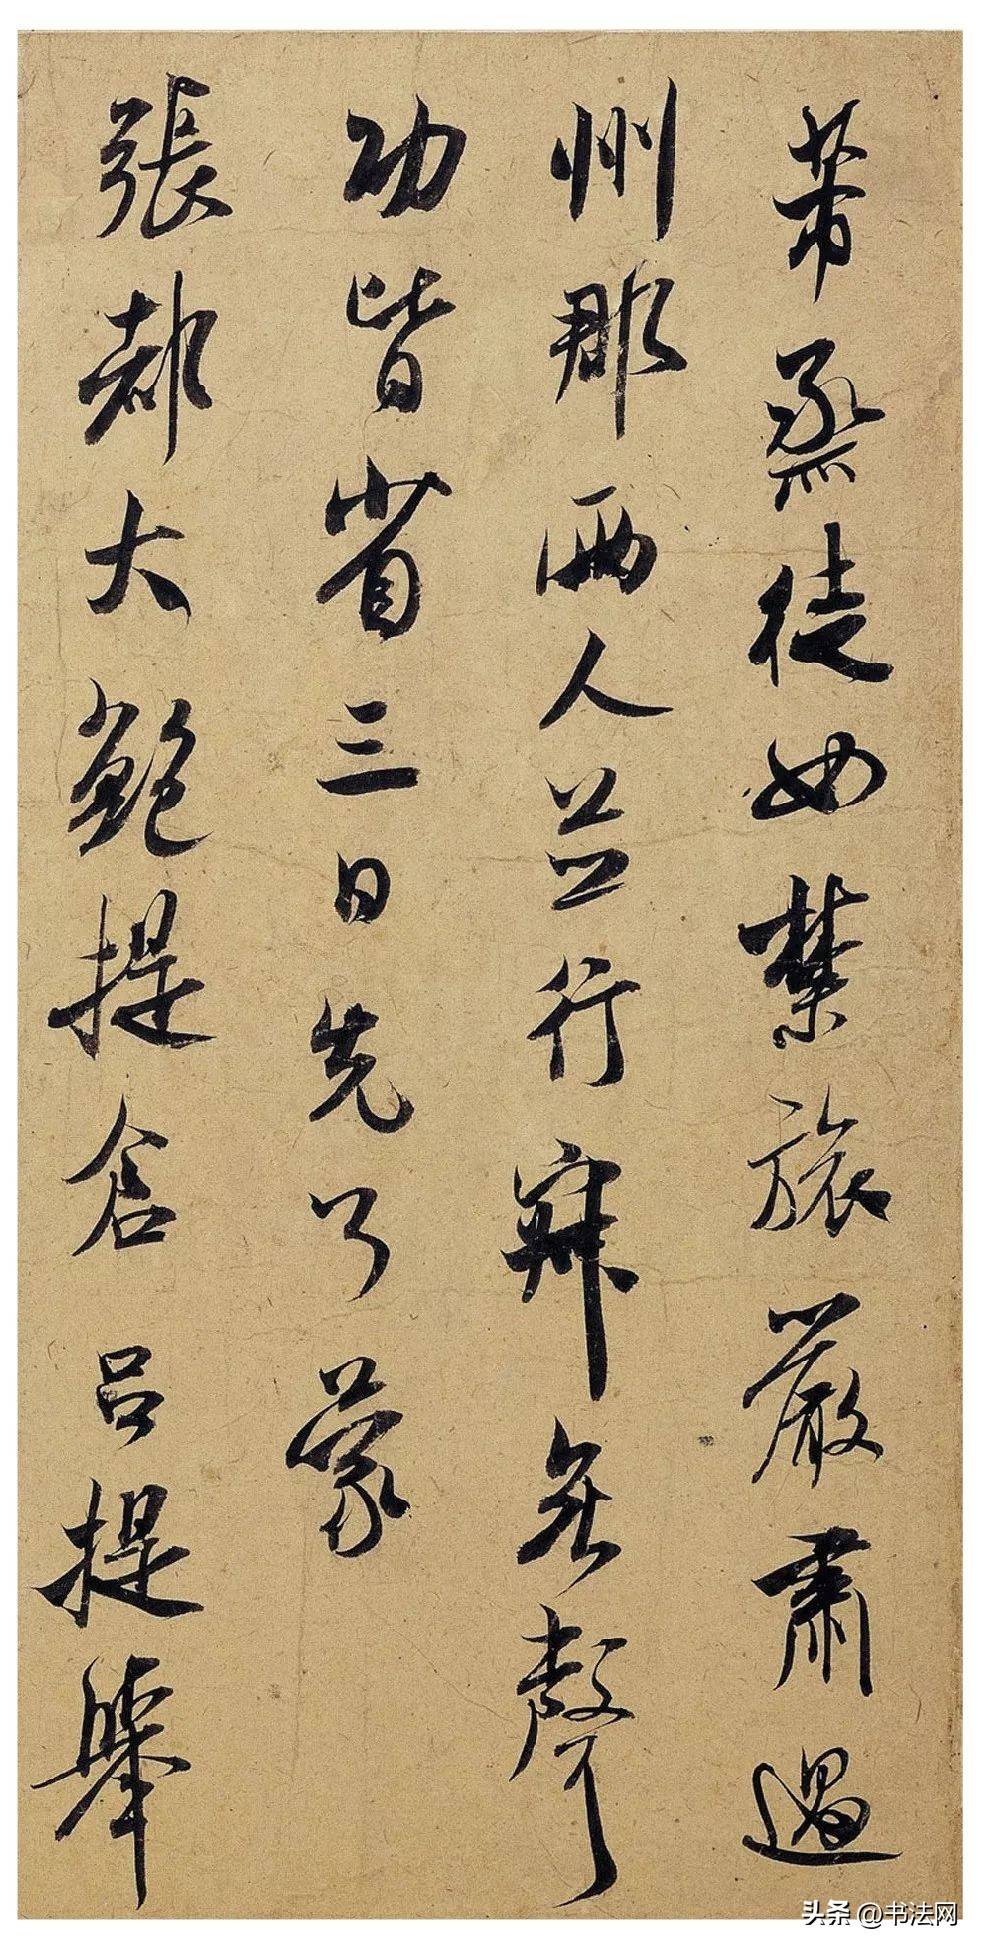 芾烝徒如禁旅嚴肅過
州郡兩人並行寂無聲
功皆省三日先了蒙
張都大鮑提倉呂提舉
头条 @书法网